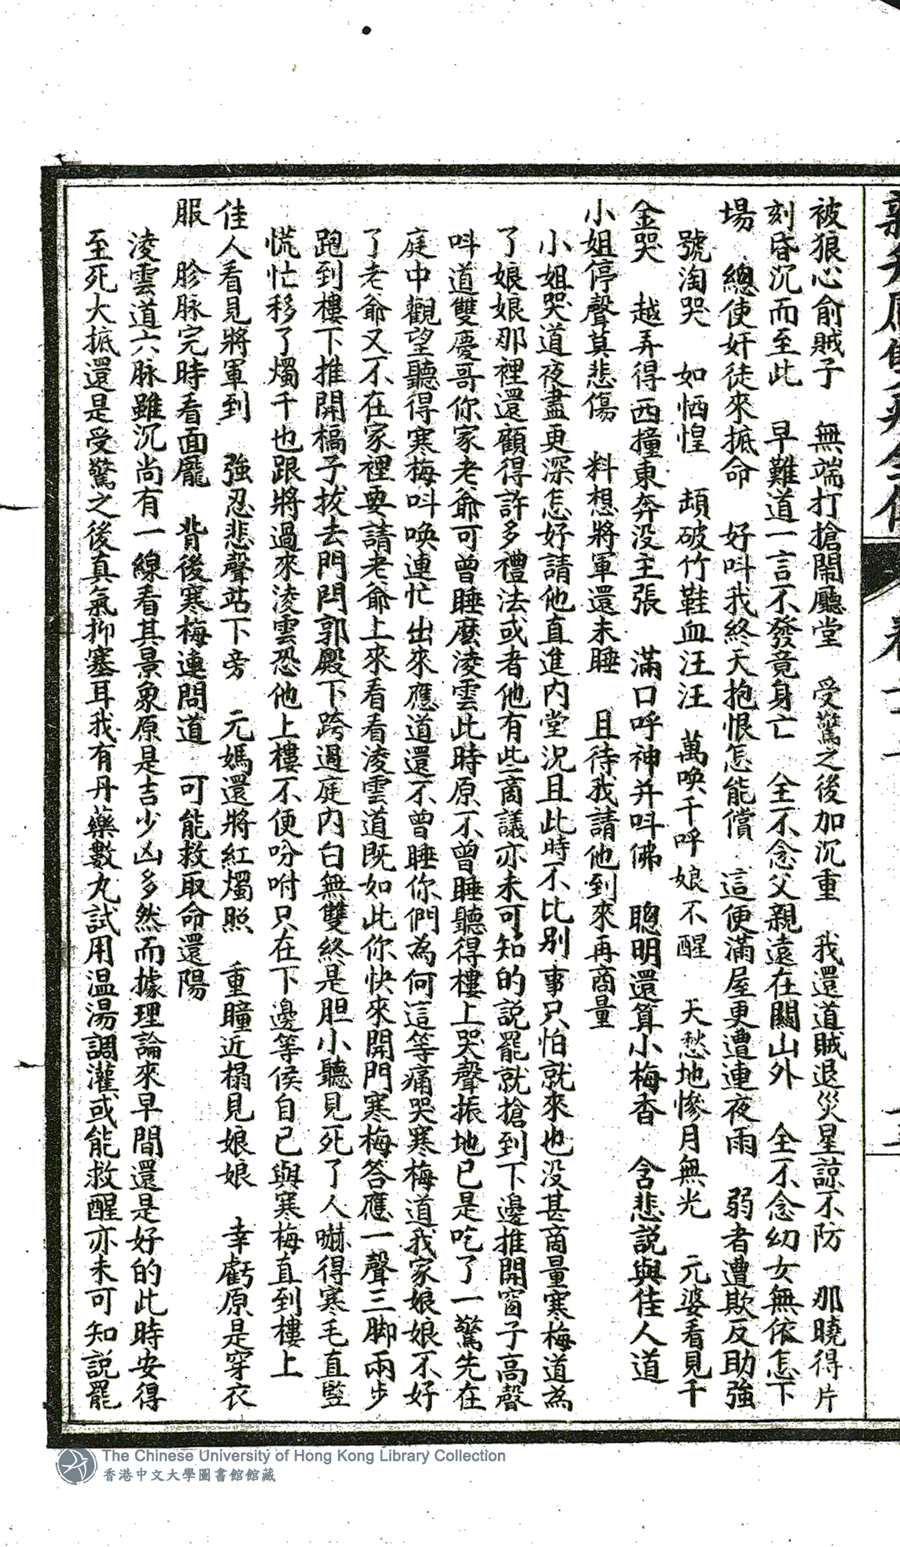 被狼心俞賊子　無端打搶鬧廳堂　受驚之後加沉重　我還道賊退災星諒不防　那曉得片
刻昏沉而至此　早難道一言不發竟身亡　全不念父親遠在關山外　全不念幼女無依怎下
場　總使奸徒來抵命　好呌我終天抱恨怎能償　這便滿屋更遭連夜雨　弱者遭欺反助強
號淘哭　如恓惶　頭破竹鞋血汪汪　萬喚千呼娘不醒　天愁地慘月無光　元婆看見十
金哭　越弄得西撞東奔没主張　滿口呼神并呌佛　聰明還算小梅香　含悲説與佳人道
小姐停聲莫悲傷　料想將軍還未睡　且待我請他到來再商量
小姐哭道夜盡更深怎好請他直進內堂況且此時不比别事只怕就來也没甚商量寒梅道為
了娘娘那裡還顧得許多禮法或者他有此商議亦未可知的説罷就搶到下邊推開窗子高聲
呌道雙慶哥你家老爺可曾睡麼淩雲此時原不曾睡聽得樓上哭聲振地已是吃了一驚先在
庭中觀望聽得寒梅呌喚連忙出來應道還不曾睡你們為何這等痛哭寒梅道我家娘娘不好
了老爺又不在家裡要請老爺上來看看淩雲道既如此你快來開門寒梅答應一聲三脚兩步
跑到樓下推開槅子拔去門閂郭殿下跨過庭內白無雙終是胆小聽見死了人嚇得寒毛直監
慌忙移了燭千也跟將過來淩雲恐他上樓不便吩咐只在下邊等侯自己與寒梅直到樓上
佳人看見將軍到　強忍悲聲站下旁　元媽還將紅燭照　重瞳近榻見娘娘　幸虧原是穿衣
服　胗脉完時看面龐　背後寒梅連問道　可能救取命還陽
淩雲道六脉雖沉尚有一線看其景象原是吉少凶多然而據理論來早間還是好的此時安得
至死大抵還是受驚之後真氣抑塞耳我有丹藥數丸試用温湯調灌或能救醒亦未可知説罷
The Chinese University of Hong Kong Library Collection
香港中文大學圖書館館藏